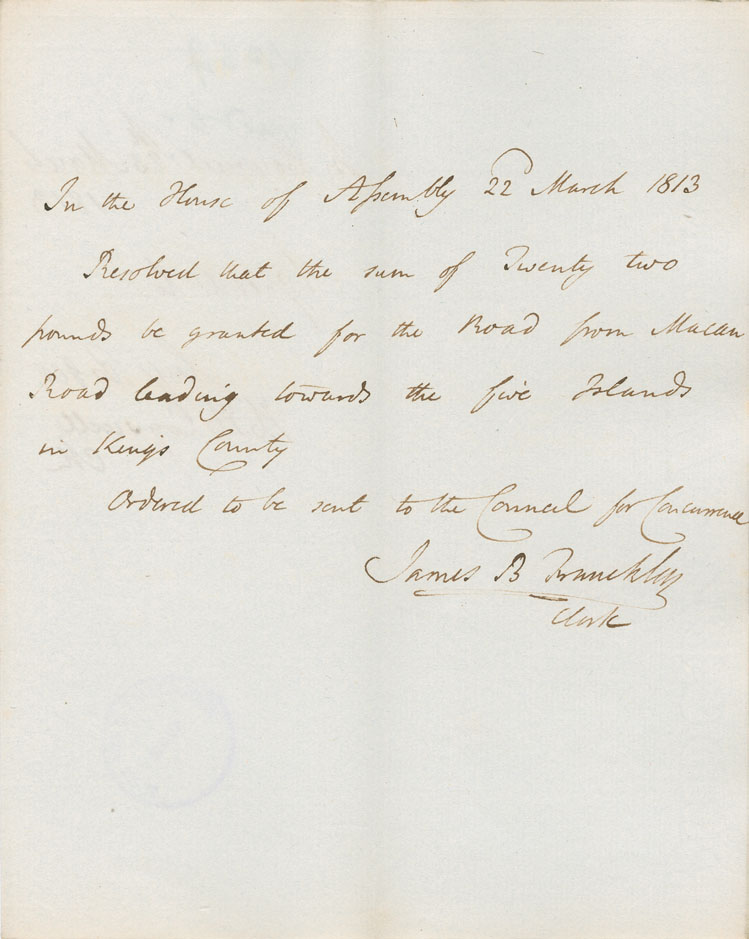 In the House of Assembly 22 March 1813
Resolved that the sum of Twenty two
pounds be granted for the Road from Macan
Road leading towards the five Islands
in Kings County
Ordered to be sent to the Council for Concurrence
James B Franckling
Clerk